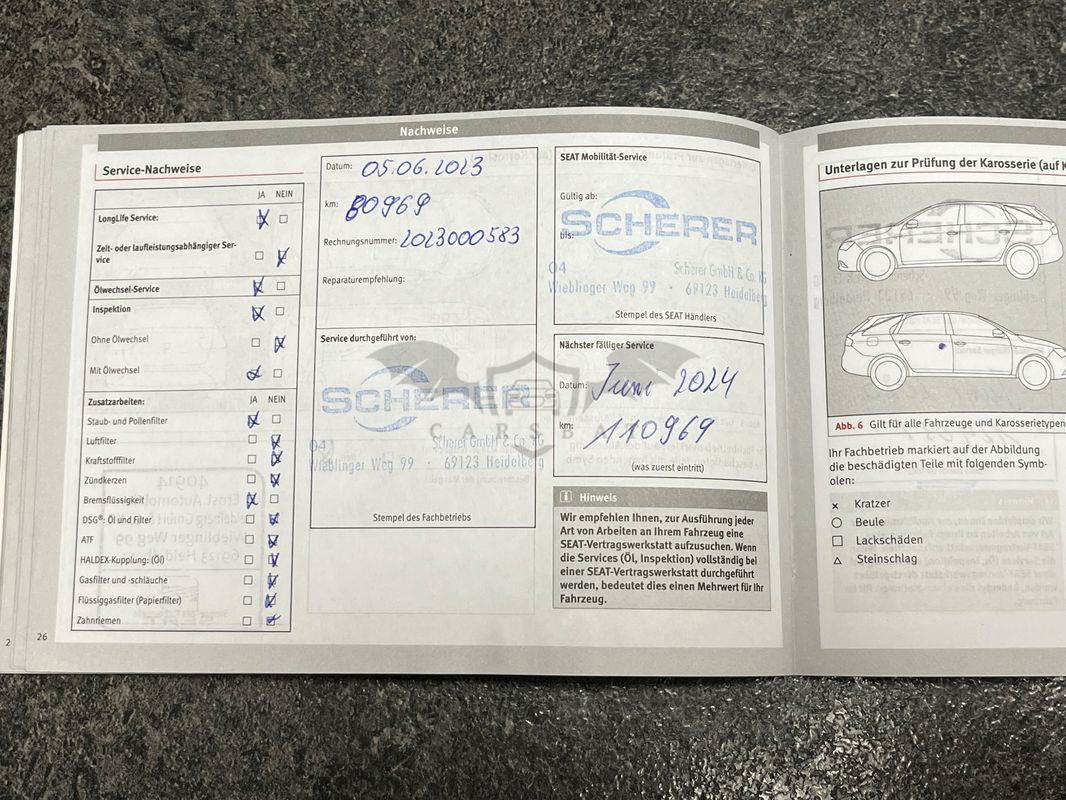 Nachweise
Service-Nachweise
JA NEIN
LongLife Service:
Zeit- oder laufleistungsabhängiger Ser-
vice
Ölwechsel-Service
Inspektion
Ohne Ölwechsel
Mit Ölwechsel
Zusatzarbeiten: JA NEIN
Staub- und Pollenfilter
Luftfilter
Kraftstofffilter
Zündkerzen
Bremsflüssigkeit
DSG®: Öl und Filter
ATF
HALDEX-Kupplung: (Öl)
Gasfilter und -schläuche
Flüssiggasfilter (Papierfilter)
Zahnriemen
26
2
Datum: 05.06.2023
km: 80969
Rechnungsnummer: 2023000583
Reparaturempfehlung:
Service durchgeführt von:
SCHERER
04 Scherer GmbH & Co. KG
Wieblinger Weg 99 · 69123 Heidelberg
Stempel des Fachbetriebs
CARSBA
SEAT Mobilität-Service
Gültig ab:
SCHERER
bis:
04 Scherer GmbH & Co. KG
Wieblinger Weg 99 · 69123 Heidelberg
Stempel des SEAT Händlers
Nächster fälliger Service
Datum: Juni 2024
km: 110969
(was zuerst eintritt)
Hinweis
Wir empfehlen Ihnen, zur Ausführung jeder
Art von Arbeiten an Ihrem Fahrzeug eine
SEAT-Vertragswerkstatt aufzusuchen. Wenn
die Services (Öl, Inspektion) vollständig bei
einer SEAT-Vertragswerkstatt durchgeführt
werden, bedeutet dies einen Mehrwert für Ihr
Fahrzeug.
Unterlagen zur Prüfung der Karosserie (auf K
Abb. 6 Gilt für alle Fahrzeuge und Karosserietypen
Ihr Fachbetrieb markiert auf der Abbildung
die beschädigten Teile mit folgenden Symb-
olen:
Kratzer
Beule
Lackschäden
Steinschlag